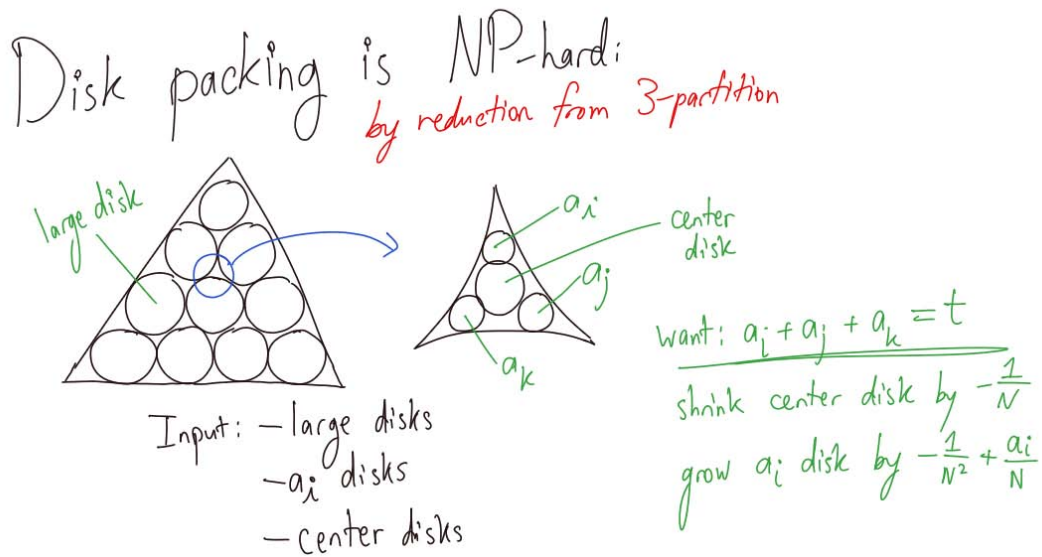 Disk packing is NP-hard:
by reduction from 3-partition
large disk
a_i
center
disk
a_j
a_k
want: a_i + a_j + a_k = t
shrink center disk by -1/N
grow a_i disk by -1/N² + a_i/N
Input: - large disks
- a_i disks
- center disks